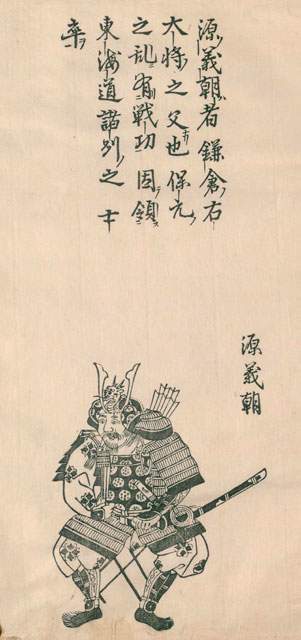 源義朝者鎌倉右
大将之父也保元
之乱有戦功因領
東海道諸州之士
卒
源義朝